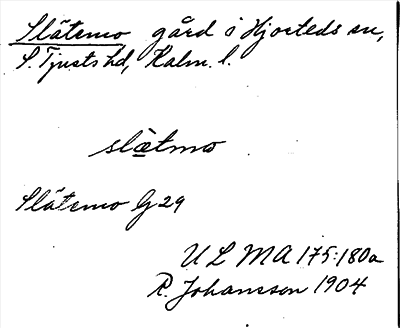 Slätemo gård i Hjorteds sn,
S. Tjusts hd, Kalm. l.
slætmo
Slätemo G 29
ULMA 175:180a
R. Johansson 1904